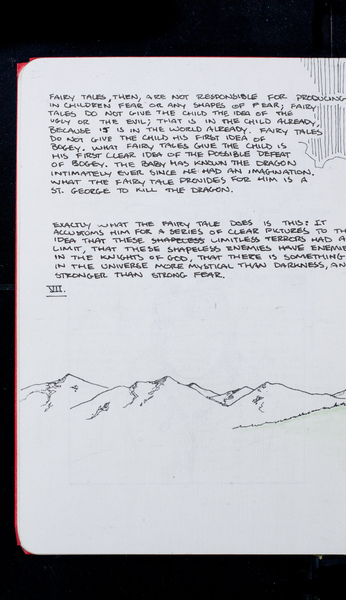 FAIRY TALES, THEN, ARE NOT RESPONSIBLE FOR PRODUCING
IN CHILDREN FEAR OR ANY SHAPES OF FEAR; FAIRY
TALES DO NOT GIVE THE CHILD THE IDEA OF THE
UGLY OR THE EVIL; THAT IS IN THE CHILD ALREADY,
BECAUSE IT IS IN THE WORLD ALREADY. FAIRY TALES
DO NOT GIVE THE CHILD HIS FIRST IDEA OF
BOGEY. WHAT FAIRY TALES GIVE THE CHILD IS
HIS FIRST CLEAR IDEA OF THE POSSIBLE DEFEAT
OF BOGEY. THE BABY HAS KNOWN THE DRAGON
INTIMATELY EVER SINCE HE HAD AN IMAGINATION.
WHAT THE FAIRY TALE PROVIDES FOR HIM IS A
ST. GEORGE TO KILL THE DRAGON.
EXACTLY WHAT THE FAIRY TALE DOES IS THIS: IT
ACCUSTOMS HIM FOR A SERIES OF CLEAR PICTURES TO TH
IDEA THAT THESE SHAPELESS LIMITLESS TERRORS HAD A
LIMIT, THAT THESE SHAPELESS ENEMIES HAVE ENEMIE
IN THE KNIGHTS OF GOD, THAT THERE IS SOMETHING
IN THE UNIVERSE MORE MYSTICAL THAN DARKNESS, AN
STRONGER THAN STRONG FEAR.
VII.